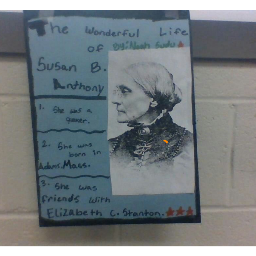 The Wonderful Life
of
Susan B.
Anthony
1. She was a
2. She was
born in
Adams, Mass.
3. She was
friends with
Elizabeth C. Stanton.